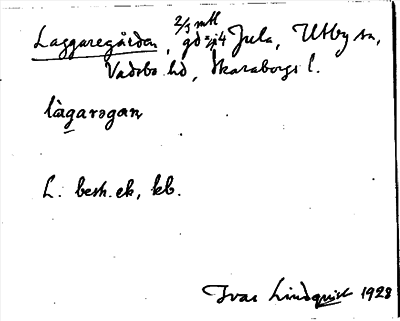 Laggaregården, 2/3 mtl gd nr 4 Jula, Utby sn,
Vadsbo hd, Skaraborgs l.
làgarəgan
L. besk. ek, kb.
Ivar Lindquist 1928